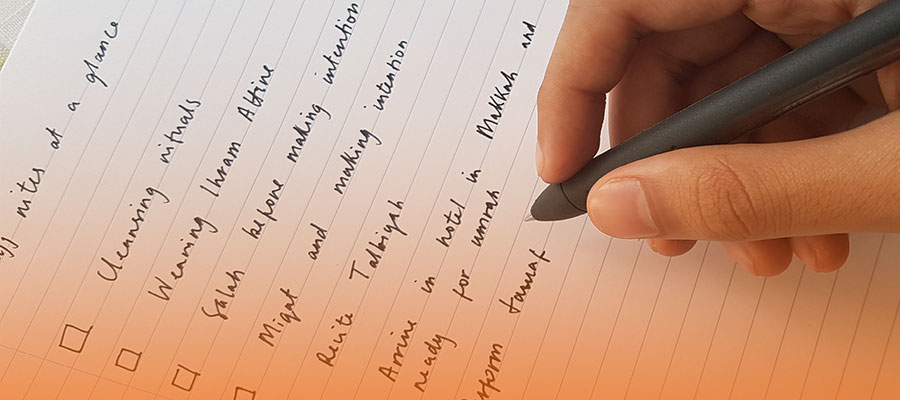 rites at a glance
Cleansing rituals
Wearing Ihram Attire
Salah before making intention
Miqat and making intention
Recite Talbiyah
Arrive in hotel in Makkah and
ready for umrah
tawaf